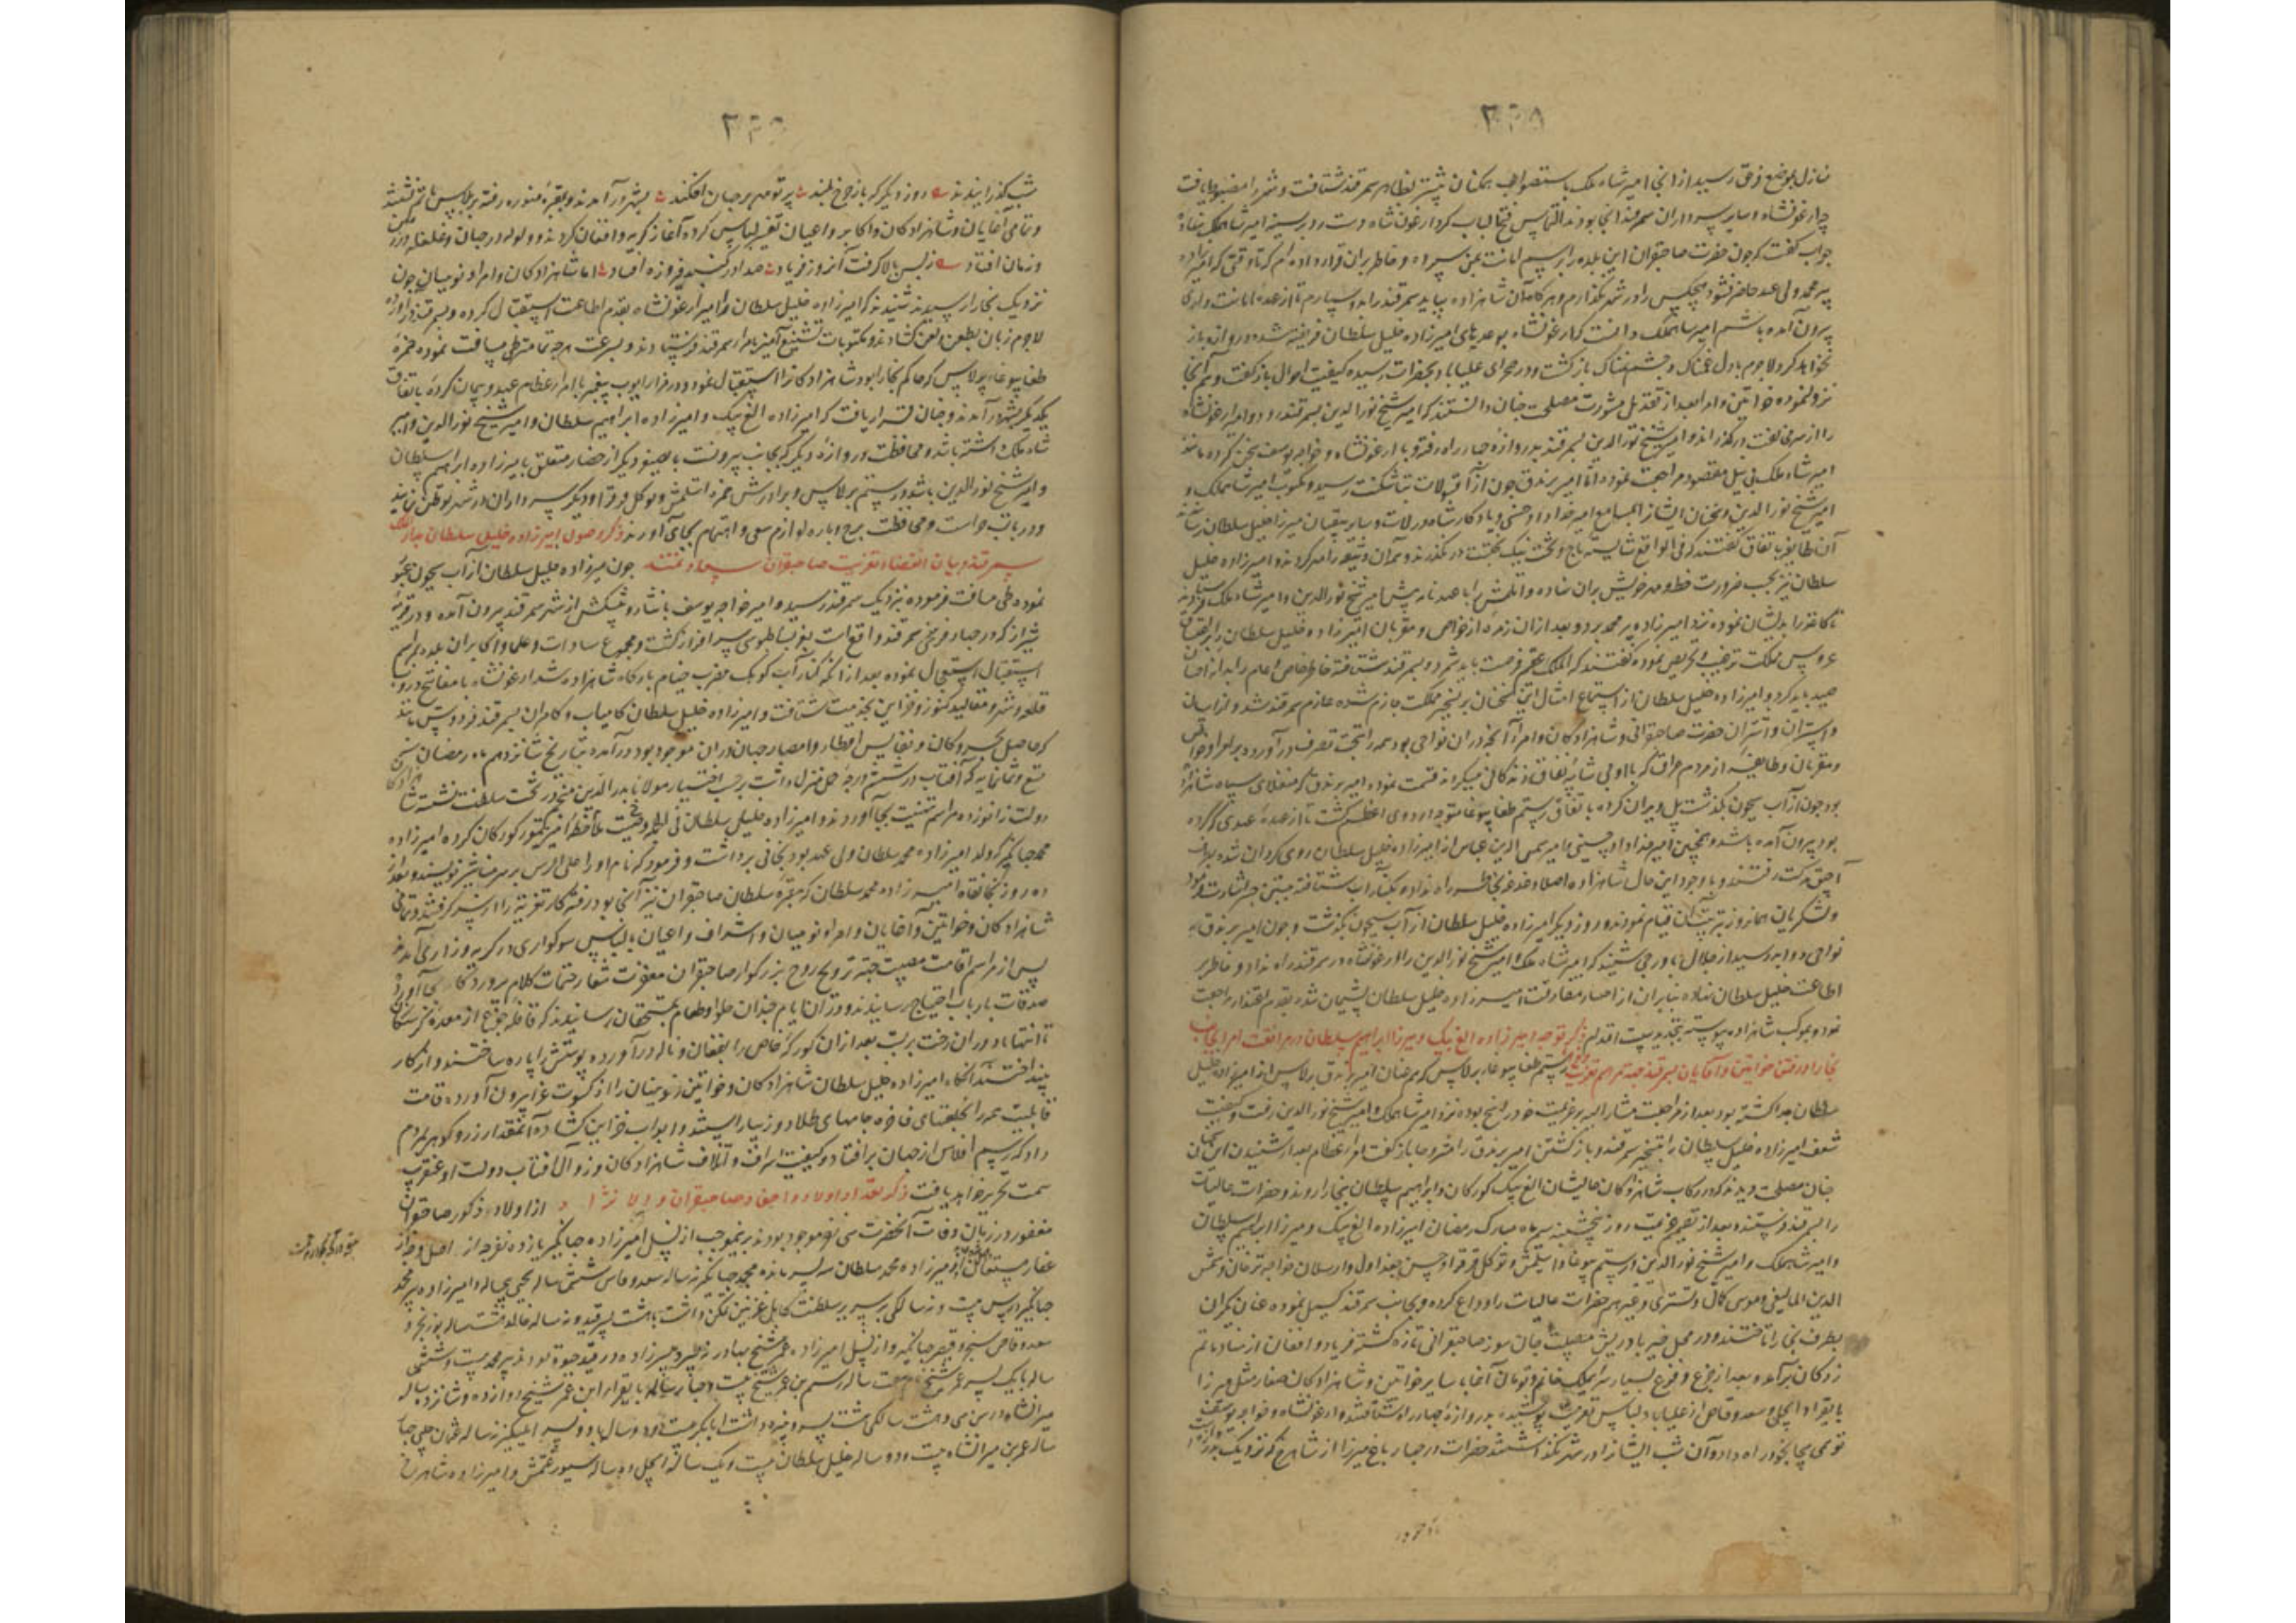 ۳۴۸
نازل بموضع فرق رسید از انجا امیر شاه ملک باستصواب همکنان پیشتر بظاهر سمرقند شتافت و شهر را مضبوط یافت
چه ارغونشاه و سایر سرداران سمرقند انجا بودند التماس فتح الباب کرد ارغونشاه دست رد بر سینه امیر شاهملک نهاده
جواب گفت که چون حضرت صاحبقران این بلده را برسم امانت بمن سپرده و خاطر بران قرار داده ام که تا وقتی که امیرزاده
پیر محمد ولی عهد حاضر نشود هیچکس را در شهر نگذارم و هرگاه آن شاهزاده بیاید سمرقند را بدو سپارم تا از عهده امانت داری
بیرون آمده باشم امیر شاهملک دانست که ارغونشاه بوعدهای امیرزاده خلیل سلطان فریفته شده دروازه باز
نخواهد کرد لاجرم با دل غمناک و چشم نمناک بازگشت و در صحرای علیاباد بحضرات رسیده کیفیت احوال بازگفت و هم آنجا
نزول نموده خواتین و امرا بعد از تقدیم مشورت مصلحت چنان دانستند که امیر شیخ نورالدین بسمرقند رود و امیر ارغونشاه
را از سر مخالفت درگذراند و امیر شیخ نورالدین بسمرقند بدروازه چهار راه رفته و با ارغونشاه و خواجه یوسف سخن کرده مانند
امیر شاه ملک بی نیل مقصود مراجعت نمود اما امیر برندق چون از آقسولات بتاشکنت رسید و مکتوب امیر شاهملک و
امیر شیخ نورالدین و سخنان ایشان بمسامع امیر خداداد حسینی و یادکار شاه ارلات و سایر متفقان میرزا خلیل سلطان رسانید
آن طایفه باتفاق گفتند که فی الواقع شایسته تاج و تخت نیک بخت درنگذرند و همان وثیقه را مهر کردند و امیرزاده خلیل
سلطان نیز بحسب ضرورت خط و مهر خویش بران نهاده و اتلمش را با عهدنامه پیش امیر شیخ نورالدین و امیر شاه ملک فرستادند
تا کاغذ را بدیشان نموده نزد امیرزاده پیر محمد برد و بعد ازان زمره از خواص و مقربان امیرزاده خلیل سلطان را بر
عروس مملکت ترغیب و تحریص نموده گفتند که الملک عقیم فرصت باید شمرد و بسمرقند شتافته خاطر خاص و عام را بدانه احسان
صید باید کرد و امیرزاده خلیل سلطان از استماع امثال این سخنان بر تسخیر مملکت جازم شده عازم سمرقند شد و از اسپان
و استران و اشتران حضرت صاحبقرانی و شاهزادگان و امرا آنچه دران نواحی بود همه را بتحت تصرف درآورد و بر امرا و خواص
و مقربان و طایفه از مردم عراق که با او بی شایبه نفاق زندگانی میکردند قسمت نمود و امیر برندق که منقلای سپاه شاهزاده
بود چون از آب سیحون بگذشت پل ویران کرده باتفاق رستم طغایبوغا متوجه اردوی اعظم گشت تا از عهده عهدی که کرده
بود بیرون آمده باشد و همچنین امیر خداداد حسینی و امیر شمس الدین عباس از امیرزاده خلیل سلطان روی گردان شده بطرف
آجیق فرکت رفتند و با وجود این حال شاهزاده اصلا دغدغه بخاطر راه نداده بکنار آب شتافته ببستن جسر اشارت فرمود
و لشکریان همانروز بترتیب آن قیام نمودند و روز دیگر امیرزاده خلیل سلطان از آب سیحون بگذشت و چون امیر برندق به
نواحی دوابه رسید از جلال باورجی شنید که امیر شاه ملک و امیر شیخ نورالدین را ارغونشاه در سمرقند راه نداد و خاطر بر
اطاعت خلیل سلطان نهاده بنابران از احصار مفارقت امیرزاده خلیل سلطان پشیمان شد و بقدم اعتذار مراجعت
نمود و بموکب شاهزاده پیوسته بتجدید بیعت اقدام نمود ذکر توجه امیرزاده الغ بیک و میرزا ابراهیم سلطان در مرافقت امرا بجانب
بخارا و رفتن خواتین و آقایان بسمرقند جهة مراسم تعزیت رستم طغایبوغا برلاس که هم عنان امیر برندق برلاس از امیرزاده خلیل
سلطان جدا گشته بود بعد از مراجعت مشار الیه بر عزیمت خود راسخ بوده نزد امیر شاهملک و امیر شیخ نورالدین رفت و کیفیت
شعف امیرزاده خلیل سلطان را بتسخیر سمرقند و بازگشتن امیر برندق را مشروحا بازگفت امرا عظام بعد از شنیدن این سخنان
چنان مصلحت دیدند که در رکاب شاهزادگان عالیشان الغ بیک گورکان و ابراهیم سلطان ببخارا روند و حضرات عالیات
را بسمرقند فرستند و بعد از تصمیم عزیمت روز پنجشنبه سیم ماه مبارک رمضان امیرزاده الغ بیک و میرزا ابراهیم سلطان
و امیر شاهملک و امیر شیخ نورالدین و رستم بوغا و ایتلمش و توکل قرقرا و حسن جغداول و ارسلان خواجه ترخان و شمس
الدین المالیغی و موسی کمال و تستری و غیرهم حضرات عالیات را وداع کرده و بجانب سمرقند گسیل نموده عنان یکران
بطرف بخارا تافتند و در محل خیرباد ریش مصیبت جان سوز صاحبقرانی تازه گشته فریاد و افغان از نهاد ماتم
زدگان برآمد و بعد از جزع و فزع بسیار سرایملک خانم و تومان آغا با سایر خواتین و شاهزادگان صغار مثل میرزا
بایقرا و ایجل و سعد وقاص از علیاباد لباس تعزیت پوشیده بدروازه چهار راه شتافتند و ارغونشاه و خواجه یوسف
توهمی بیجا بخود راه داد و آن شب ایشان را در شهر نگذاشتند حضرات در چهار باغ میرزا از شاهرخ که نزدیک بدروازه
۳۴۹
شب گذرانیدند روز دیگر که باز چرخ بلند پرتو مهر بر جهان افکند بشهر درآمدند و ببقعه منوره رفته بر پلاس ماتم نشستند
و تمامی آقایان و شاهزادگان و اکابر و اعیان تغییر لباس کرده آغاز گریه و افغان کردند و ولوله در جهان و غلغله در زمین
و زمان افتاد ز بس بالا گرفت آنروز فریاد صدا در گنبد فیروزه افتاد اما شاهزادگان و امرا و نوئینان چون
نزدیک بخارا رسیدند شنیدند که امیرزاده خلیل سلطان را امیر ارغونشاه بقدم اطاعت استقبال کرده و بسمرقند درآورده
لاجرم زبان بطعن و لعن گشادند و مکتوبات تشنیع آمیز بامرا سمرقند فرستادند و بسرعت هرچه تمامتر طی مسافت نموده حمزه
طغایبوغا برلاس که حاکم بخارا بود شاهزادگان را استقبال نمود و در مزار ایوب پیغمبر با امرا عظام عهد و پیمان کرده باتفاق
یکدیگر بشهر درآمدند و چنان قرار یافت که امیرزاده الغ بیک و امیرزاده ابراهیم سلطان و امیر شیخ نورالدین و امیر
شاه ملک داشته باشد و محافظت دروازه دیگر که بجانب بیرونست با نصف دیگر از حصار متعلق بامیرزاده ابراهیم سلطان
و امیر شیخ نورالدین باشد و رستم برلاس و برادرش حمزه اتلمش و توکل قرقرا و دیگر سرداران در شهر توطن نمایند
و در باب حراست و محافظت برج و باره لوازم سعی و اهتمام بجای آوردند ذکر وصول امیرزاده خلیل سلطان بدار الملک
سمرقند و بیان انقضاء تعزیت صاحبقران سعادتمند چون میرزاده خلیل سلطان از آب سیحون عبور
نموده طی مسافت فرموده نزدیک سمرقند رسید و امیر خواجه یوسف با نثار و پیشکش از شهر سمرقند بیرون آمده و در قریه
شیراز که در چهار فرسخی سمرقند واقع است بعز بساط بوسی سرافراز گشت و مجموع سادات و علما و اکابران بلده مراسم
استقبال استعجال نموده بعد از آنکه کنار آب کوهک مضرب خیام بارگاه شاهزاده شد ارغونشاه با مفاتیح دروب
قلعه و شهر و مقالید کنوز و خزاین بخدمت شتافت و امیرزاده خلیل سلطان کامیاب و کامران بسمرقند فردوس مانند
که حاصل بحر و کان و نفایس اقطار و امصار جهان دران موجود بود درآمد بتاریخ شانزدهم ماه رمضان سنه
تسع و ثمانمایه که آفتاب در ششم درجه حمل منزل داشت برحسب اختیار مولانا بدرالدین منجم در تخت سلطنت نشست شاهزادگان
دولت زانو زده مراسم تهنیت بجا آوردند و امیرزاده خلیل سلطان فی الجمله وصیت ملاحظه امیر تیمور گورکان کرده امیرزاده
محمد جهانگیر که ولد امیرزاده محمد سلطان ولی عهد بود بخانی برداشت و فرمود که نام او را علی الرسم بر سر مناشیر نویسند و بعد از
ده روز بخانقاه امیرزاده محمد سلطان که مقبره سلطان صاحبقران نیز آنجا بود رفته کار تعزیت را از سر گرفتند و تمامی
شاهزادگان و خواتین و آقایان و امرا و نوئینان و اشراف و اعیان با لباس سوگواری در گریه و زاری آمدند
پس از مراسم اقامت مصیبت جهة ترویح روح بزرگوار صاحبقران مغفرت شعار ختمات کلام پروردگار بجا آوردند
صدقات بارباب احتیاج رسانیدند و دران ایام چندان حلوا و طعام بمستحقان رسانیدند که قافله جوع از معده گرسنگان
تا انتهاء دوران رخت بربست بعد ازان کورکه خاص را بفغان و ناله درآورده پوستش را پاره ساختند و از کار
بینداختند آنگاه امیرزاده خلیل سلطان شاهزادگان و خواتین و نوئینان را از کسوت عزا بیرون آورده قامت
قابلیت همه را بخلعتهای فاخره و جامهای طلادوز بیاراستند و ابواب خزاین گشاده آنمقدار زر و گوهر بمردم
داد که رسم افلاس از جهان برافتاد و کیفیت اسراف و اتلاف شاهزادگان و زوال آفتاب دولت او عنقریب
سمت تحریر خواهد یافت ذکر تعداد اولاد و احفاد صاحبقران والا نژاد از اولاد ذکور صاحبقران
مغفور در زمان وفات آنحضرت سی نفر موجود بودند برینموجب از نسل امیرزاده جهانگیر یازده نفر
میرزاده محمد سلطان سه پسر مانده محمد جهانگیر نه ساله سعد وقاص شش ساله یحیی پنجساله و امیرزاده پیر محمد
جهانگیر در سن بیست و نه سالگی بر سریر سلطنت کابل و غزنین تمکن داشت با هشت پسر قیدو نه ساله خالد هشت ساله بوزنجر
سعد وقاص سنجر و قیصر جهانگیر و از نسل امیرزاده عمر شیخ بهادر نه نفر در قید حیوة بودند پیر محمد بیست و شش
ساله با یک پسر عمر شیخ هفت ساله رستم بن عمر شیخ بیست و چهار ساله بایقرا بن عمر شیخ دوازده
میرانشاه در سن سی و هشت سالگی هشت پسر داشت ابابکر بیست و دو ساله با دو پسر ایلنگیر نه ساله عثمان چلبی چهار
ساله عمر بن میرانشاه بیست و دو ساله خلیل سلطان بیست و یک ساله ایجل ده ساله سیورغتمش و امیرزاده شاهرخ